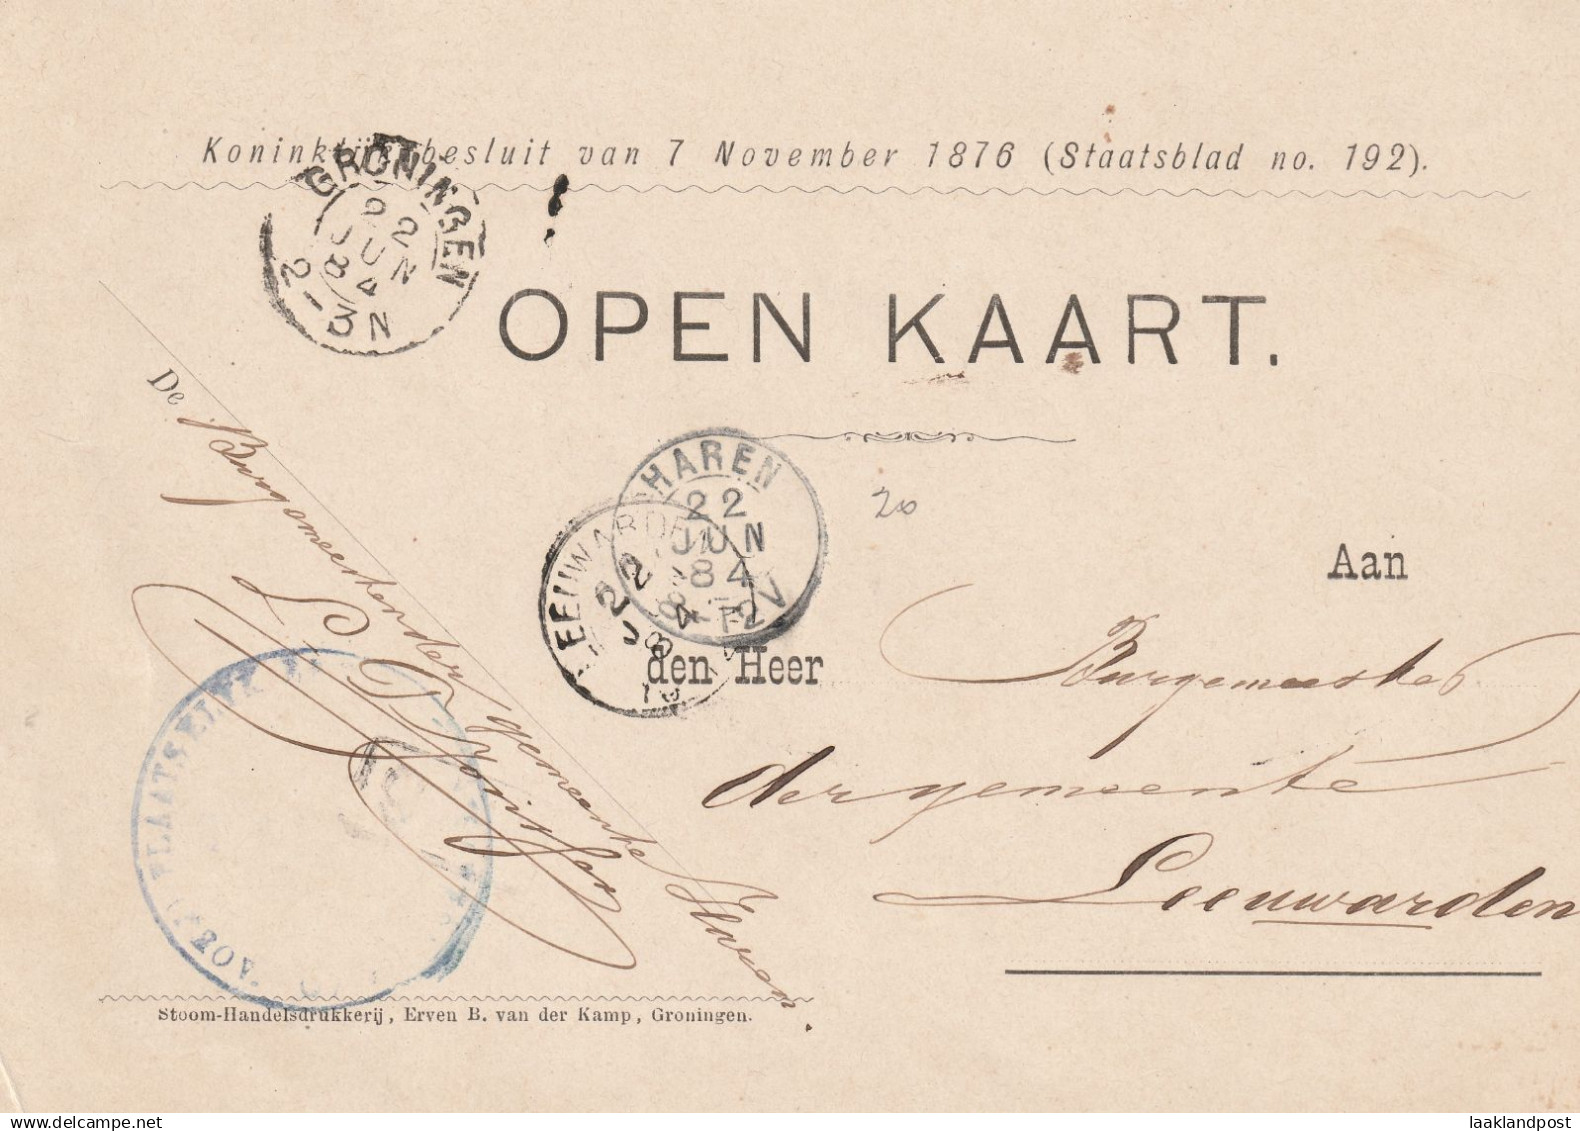 Koninklijk besluit van 7 November 1876 (Staatsblad no. 192).
GRONINGEN
22
JUN
84
2-3N
OPEN KAART.
HAREN
22
JUN
84
8-12V
LEEUWARDEN
22
20
Aan
den Heer
Burgemeester
der gemeente
Leeuwarden
De Burgemeester der gemeente Haren
PLAATSELYK
Stoom-Handelsdrukkerij, Erven B. van der Kamp, Groningen.
delcampe.net
laaklandpost